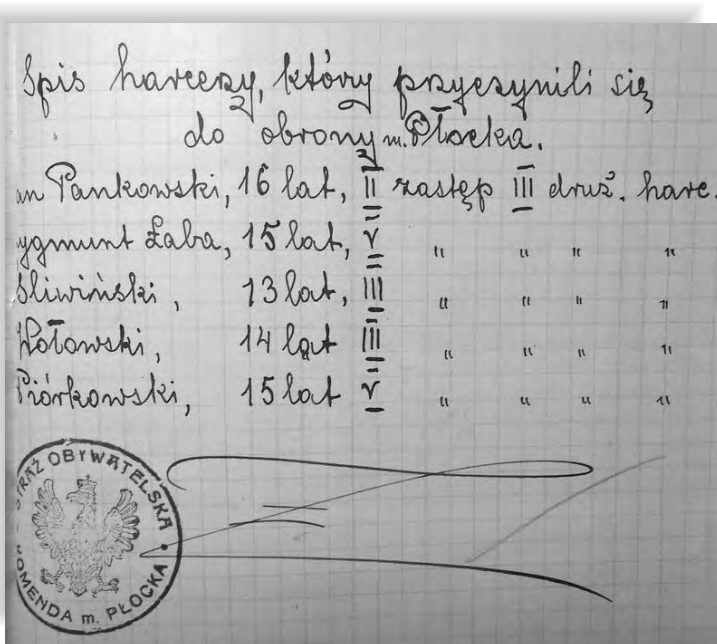 Spis harcerzy, który przyczynili się
do obrony m. Płocka.
an Pankowski, 16 lat, II zastęp III druż. harc.
ygmunt Żaba, 15 lat, V " " " "
Śliwiński, 13 lat, III " " " "
Wołowski, 14 lat III " " " "
Piórkowski, 15 lat V " " " "
STRAŻ OBYWATELSKA
KOMENDA m. PŁOCKA